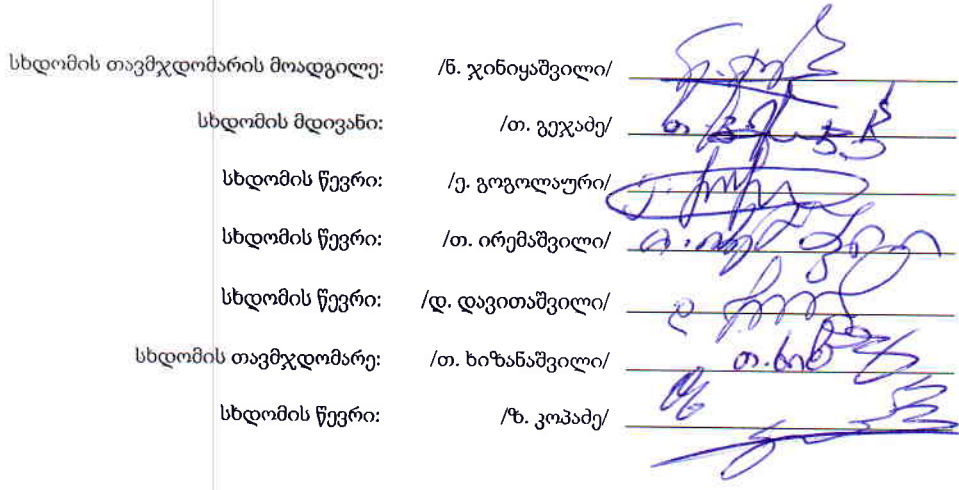 სხდომის თავმჯდომარის მოადგილე: /ნ. ჯინიყაშვილი/
სხდომის მდივანი: /თ. გეჯაძე/
სხდომის წევრი: /ე. გოგოლაური/
სხდომის წევრი: /თ. ირემაშვილი/
სხდომის წევრი: /დ. დავითაშვილი/
სხდომის თავმჯდომარე: /თ. ხიზანაშვილი/
სხდომის წევრი: /ზ. კოპაძე/